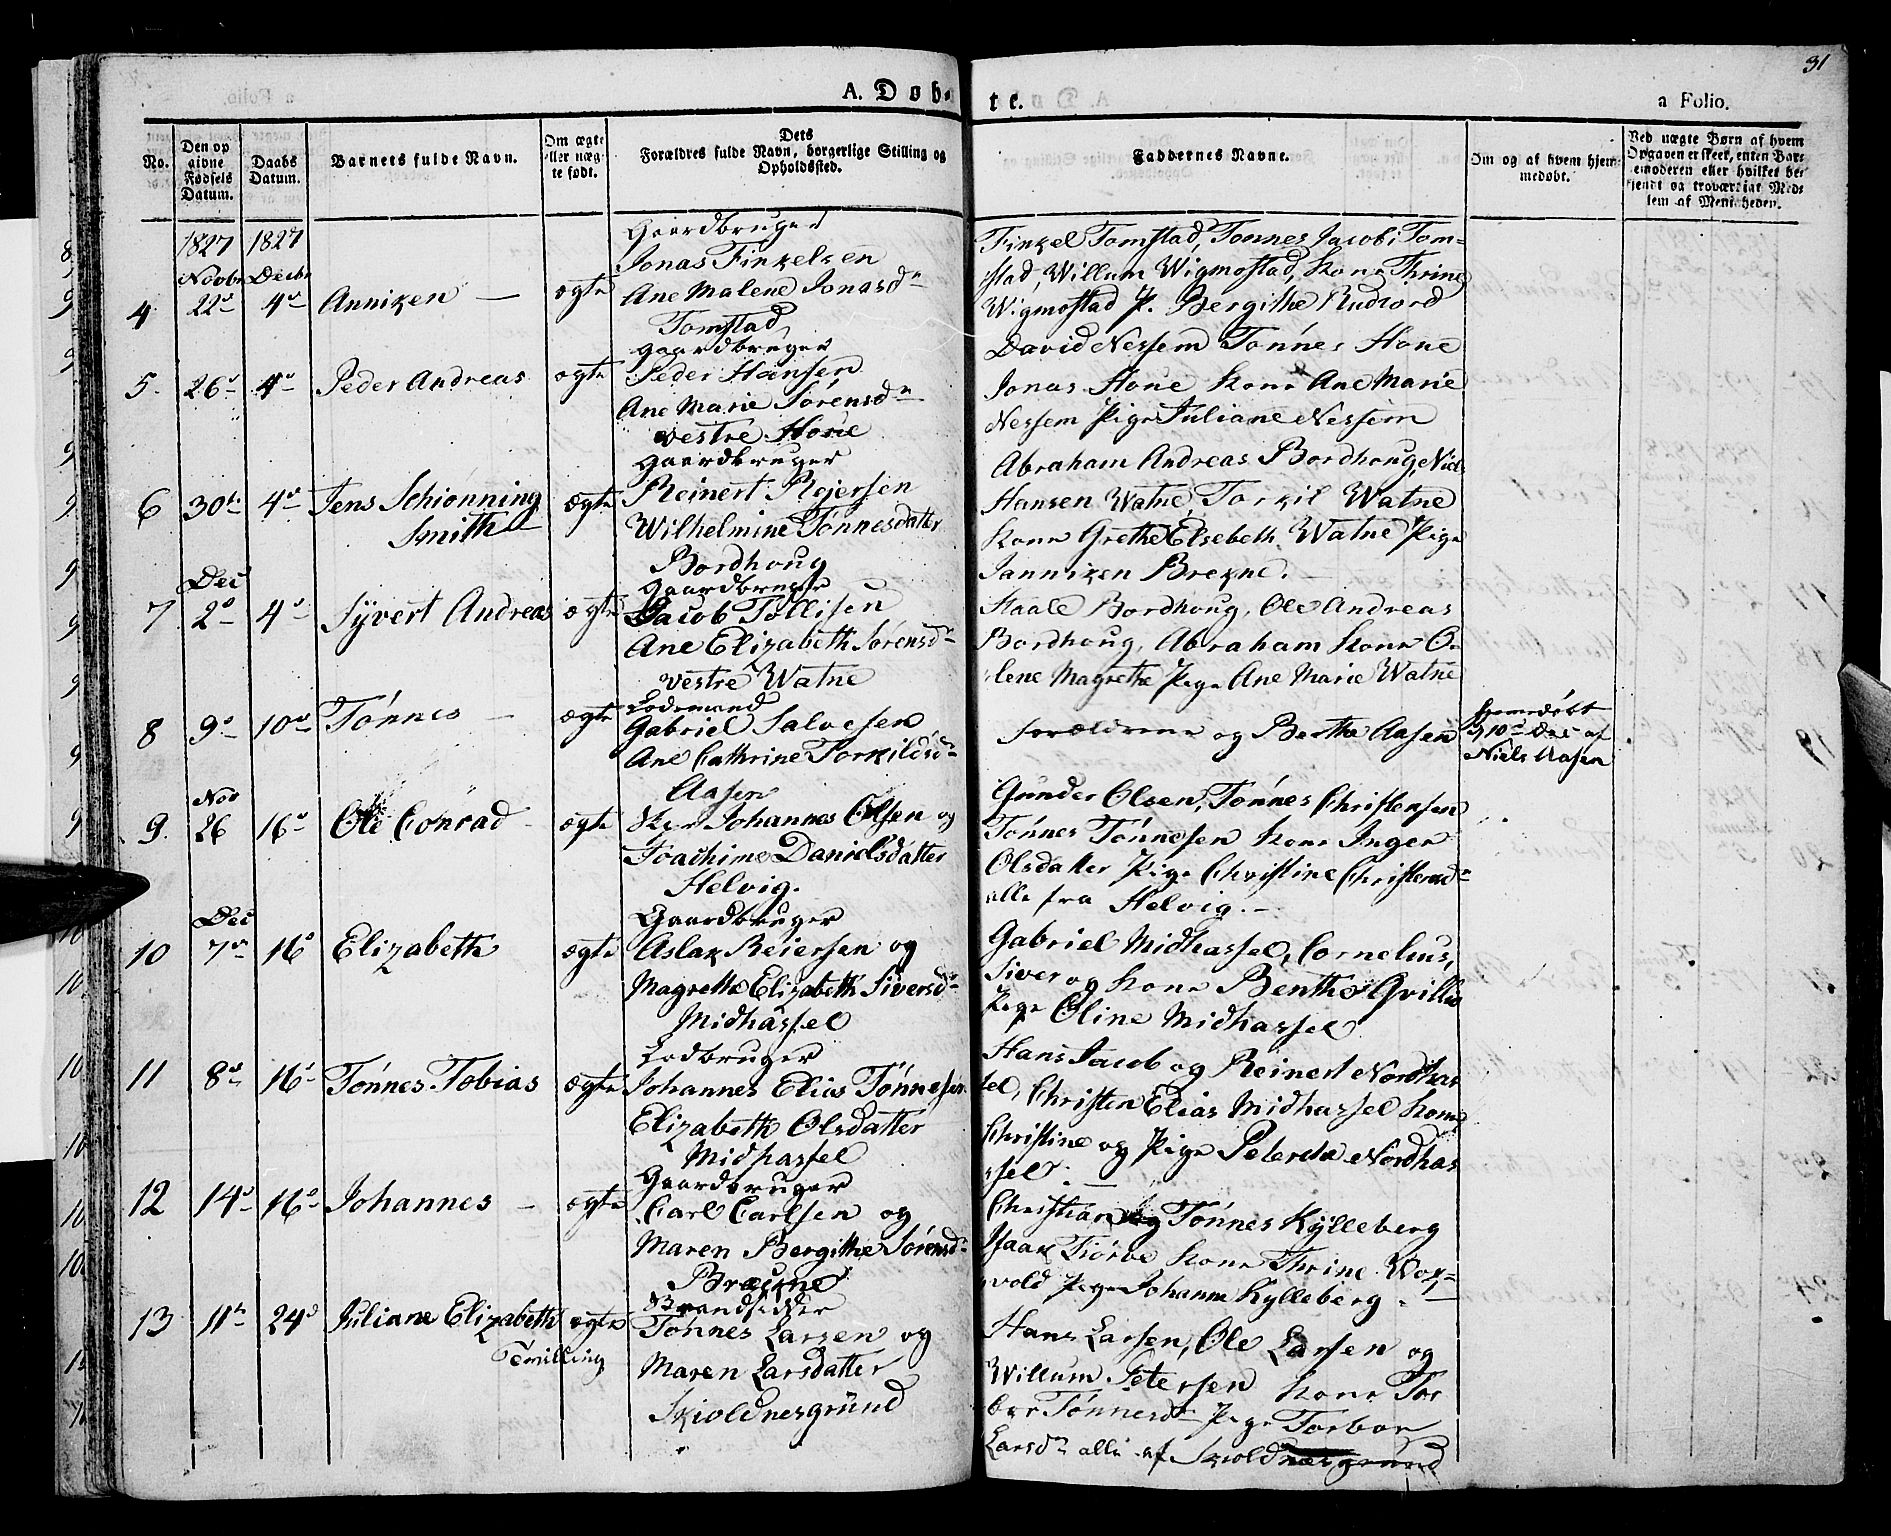 31
A. Døb-
te.
a Folio.
No.
Den op
givne
Fødsels
Datum.
Daabs
Datum.
Barnets fulde Navn.
Om ægte
eller uæg-
te født.
Dets
Forældres fulde Navn, borgerlige Stilling og
Opholdssted.
Faddernes Navne.
Om og af hvem hjem-
medøbt.
Ved uægte Børn af hvem
Opgaven er skeet, enten Bar-
nemoderen eller hvilket be-
kjendt og troværdigt Med-
lem af Menigheden.
1827 1827
Novbr Decbr
4 22de 4de Anniken — ægte
Gaardbruger
Jonas Finkelsen
Ane Malene Jonasdr
Tomstad
Finkel Tomstad, Tønnes Jacob, Tom-
stad, Willum Wigmostad, Kone Thrine
Wigmostad P. Bergithe Rudiord
5. 26d 4de Peder Andreas ægte
Gaardbruger
Peder Hansen
Ane Marie Sørensdr
vestre Houe
David Nessem Tønnes Houe
Jonas Houe Kone Ane Marie
Nessem Pige Juliane Nessem
6 30te 4de Jens Schionning
Smith ægte
Gaardbruger
Reinert Rejersen
Wilhelmine Tønnesdatter
Bordhoug
Abraham Andreas Bordhoug, Niels
Hansen Watne, Torkil Watne
Kone Grethe Elsebeth Watne Pige
Janniken Brekne.
Dec
7 2d 4de Syvert Andreas ægte
Gaardbruger
Jacob Tollisen
Ane Elizabeth Sørensdr
vestre Watne
Staale Bordhoug, Ole Andreas
Bordhoug, Abraham Kone O-
lene Magrethe Pige Ane Marie Watne
8 9d 10de Tønnes — ægte
Lodsmand
Gabriel Salvesen
Ane Cathrine Torkildsdr
Aasen
Forældrene og Berthe Aasen
hjemdøbt
d 10d Dec af
Niels Aasen
Nov
9. 26 16d Ole Conrad ægte
Johannes Olsen og
Joachime Danielsdatter
Helvig.
Gunder Olsen, Tønnes Christensen
Tønnes Tønnesen Kone Inger
Olsdatter Pige Christine Christensdr
alle fra Helvig. —
Dec
10 7de 16d Elizabeth ægte
Gaardbruger
Aslak Reiersen og
Magrethe Elizabeth Siversdr
Midhassel
Gabriel Midhassel, Cornelius,
Siver og Kone Benthe Qvillio
Pige Oline Midhassel
11 8de 16d Tønnes Tobias ægte
Lodbruger
Johannes Elias Tønnesen
Elizabeth Olsdatter
Midhassel
Hans Jacob og Reinert Nordhas-
sel, Christen Elias Midhassel Kone
Christine og Pige Peternele Nordhas
sel. —
12 14d 16d Johannes — ægte
Gaardbruger
Carl Carlsen og
Maren Bergithe Sørensdr
Brækne
Christian og Tønnes Kylleberg
Isaak Tiørve Kone Thrine Wox-
vold Pige Johanne Kylleberg.
13 11te 24d Juliane Elizabeth ægte
Tvilling
Strandsidder
Tønnes Larsen og
Maren Larsdatter
Skioldnesgrund
Hans Larsen, Ole Larsen og
Willum Petersen Kone Tor
bor Tønnesdr Pige Torbor
Larsdr alle af Skioldnesgrund